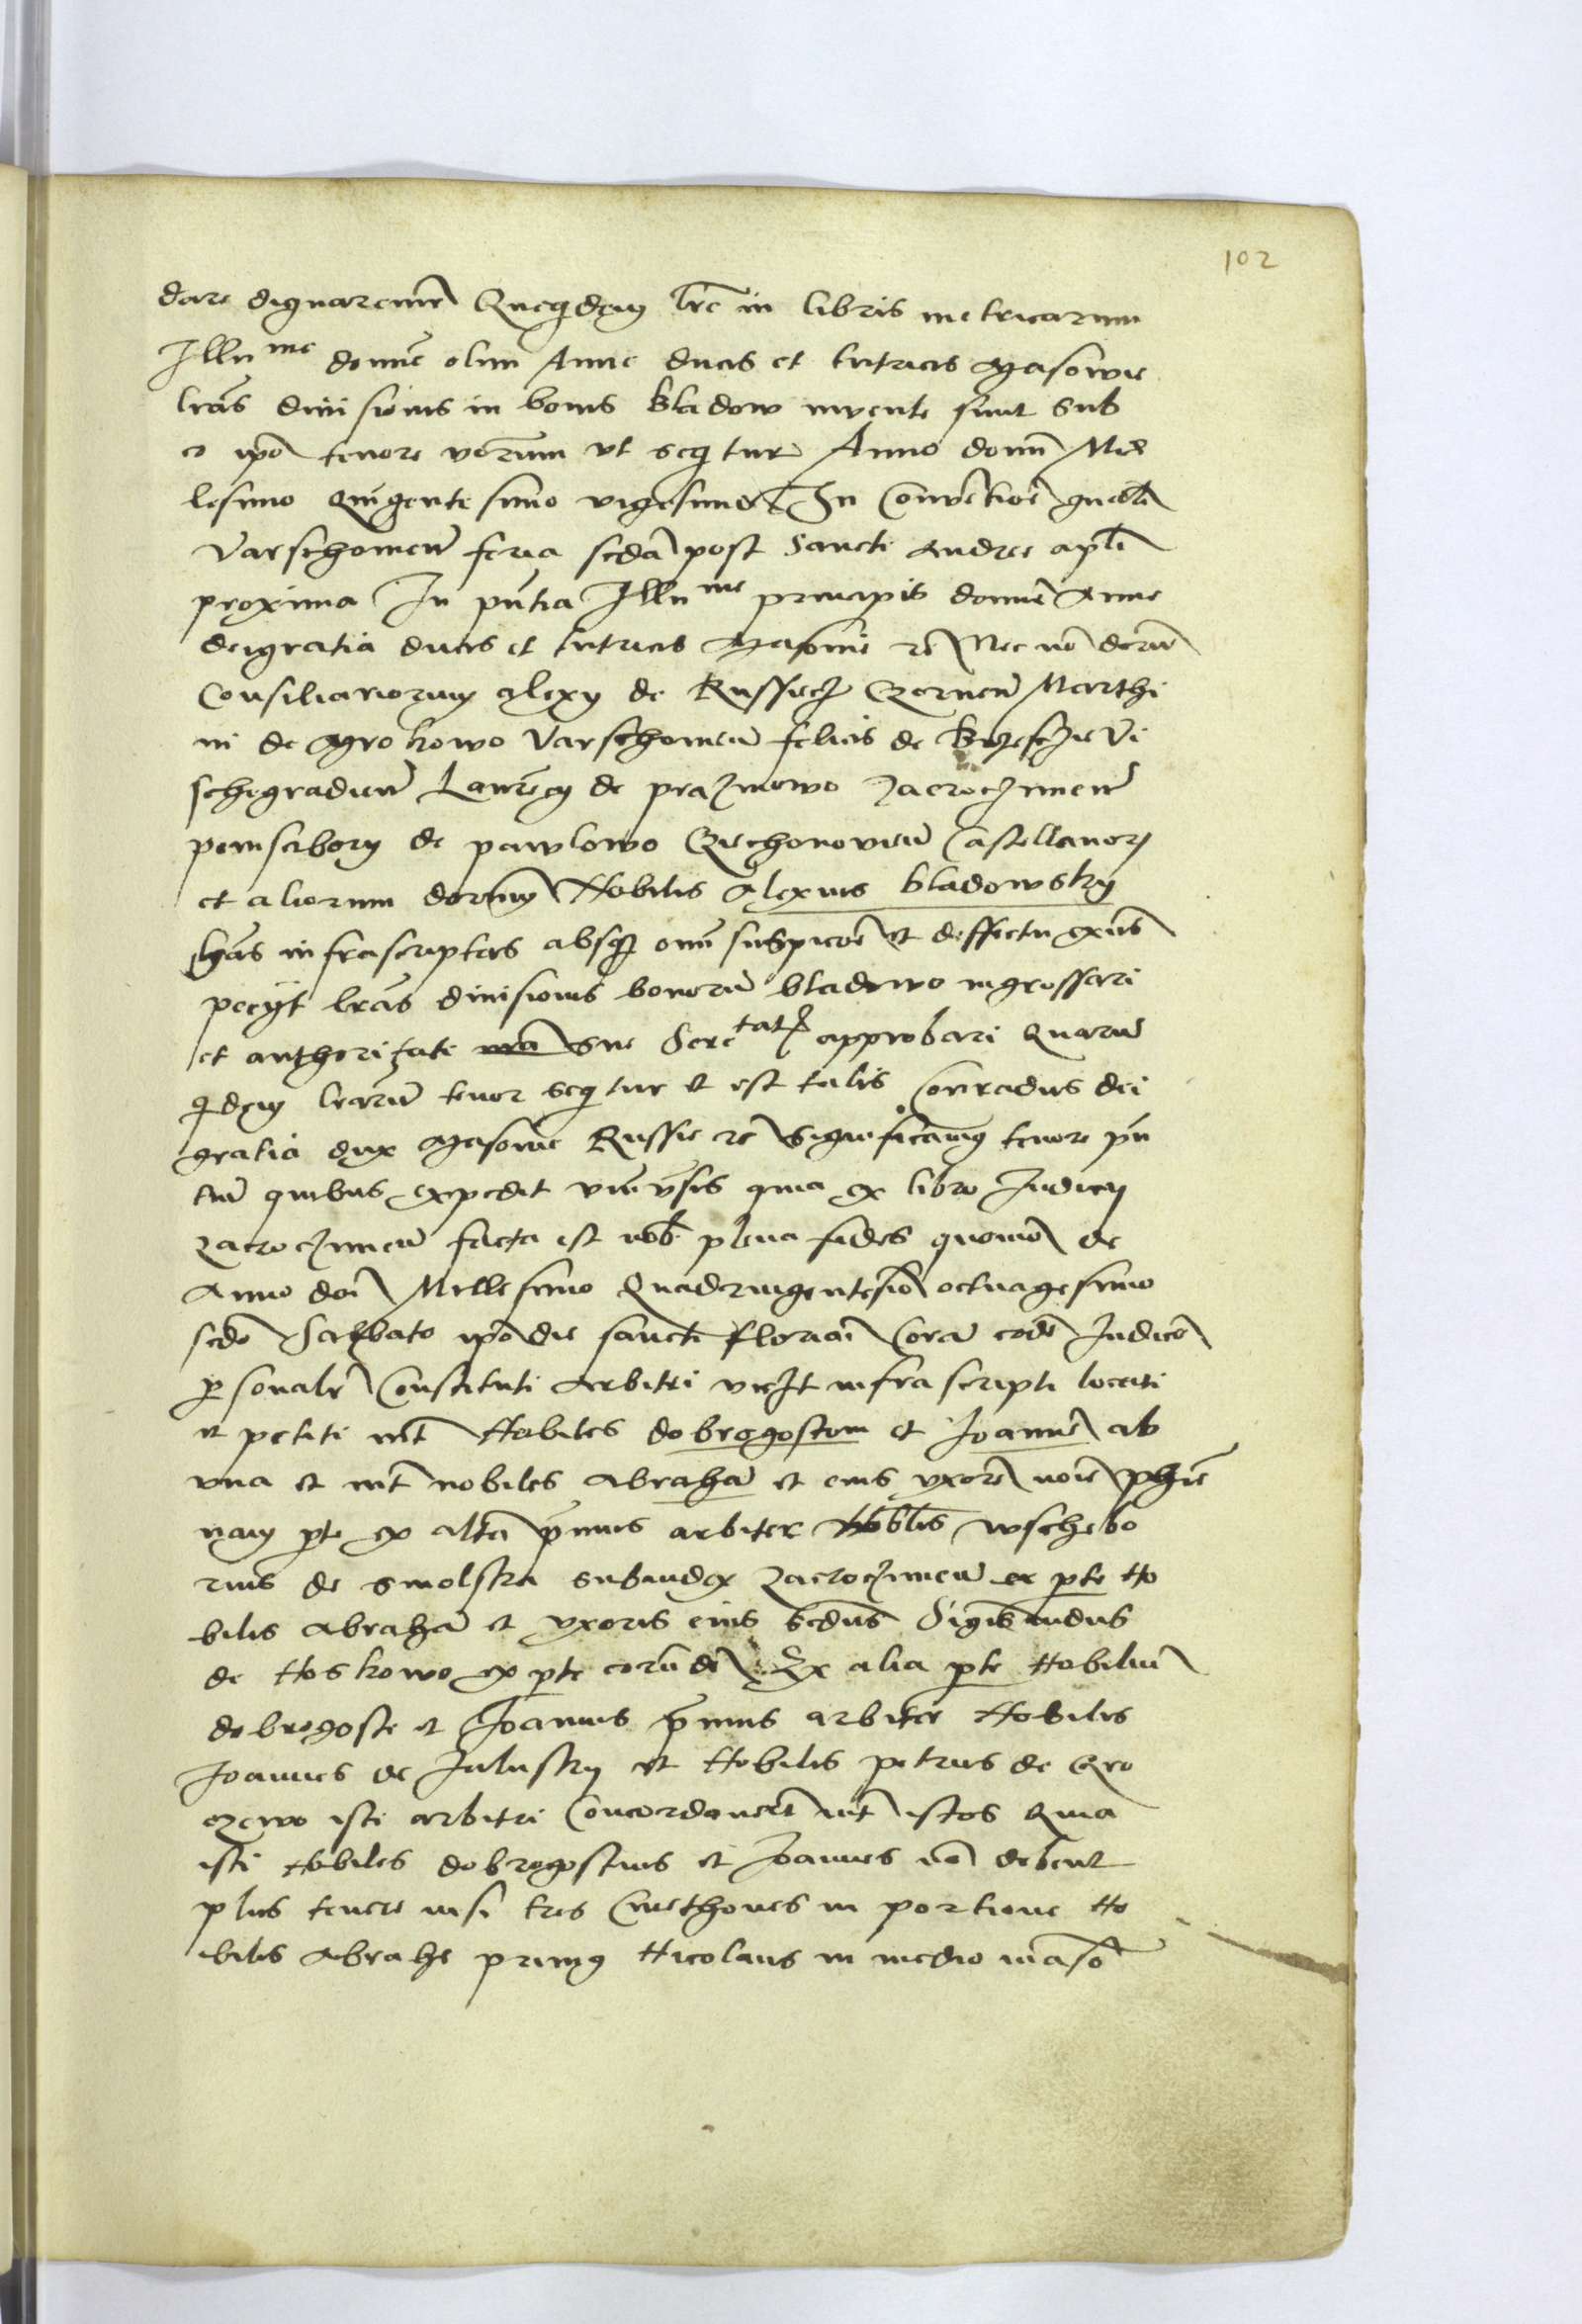 102
dare dignaremur Queqdem lre in libris metricarum
Illume domne olim Anne ducis et tutricis Masowie
lras divisionis in bonis Bladow invente sunt sub
eo ipo tenore verum ut seqtur Anno domi Mil
lesimo Quingentesimo vigesimo In Conventioe gnali
Varschowien feria seda post Sancti Andree apli
proxima In pntia Illume principis domne Anne
dei gratia ducis et tutricis Masowie rc Nec no doru
Consiliariorum Alexy de Russiecz Czernen Marthi
ni de Mrokowo Varschowien felicis de Brzesczie Vi
schegradien Laurecy de prazmowo Zacroczimen
pomscibory de pawlowo Czechonovien Castellanor
et aliorum dorum Nobilis Alexius bladowsky
has infrascriptas absq omi suspicoe et deffectu exns
peciit lras divisionis bonoru bladowo ingrossari
et authorizati sue Seretat approbari Quaru
qdem lraru tenor seqtur et est talis Conradus dei
gratia dux Masowie Russie rc Significamus tenore pn
tiu quibus expedit univsis quia ex libro Iudicy
Zacroczimen facta est nob plena fides quomo de
Anno doi Millesimo Quadringentesio octuagesimo
sedo Sabbato ipo die sancti floriai Cora eode Iudico
psonalr Constituti Arbitri vicz infrascripti locati
et petiti int Nobiles dobrogostom et Ioanne ab
una et int nobiles Abraha et eius uxore noie phie
nam pte ex alta pmus arbiter Nobilis wschebo
rius de smolska subiudex Zacroczimen ex pte No
bilis Abraha et uxoris eius sedus Sigismudus
de Noskowo ex pte eorude Ex alia pte Nobiliu
dobrogosti et Ioannis pmus arbiter Nobilis
Ioannes de Iulusky et Nobilis petrus de Cro
czewo isti arbitri Concordaverut int istos Quia
isti Nobiles dobrogostius et Ioannes no debent
plus tenere nisi tres Cmethones in portione No
bilis Abrahe primus Nicolaus in medio maso